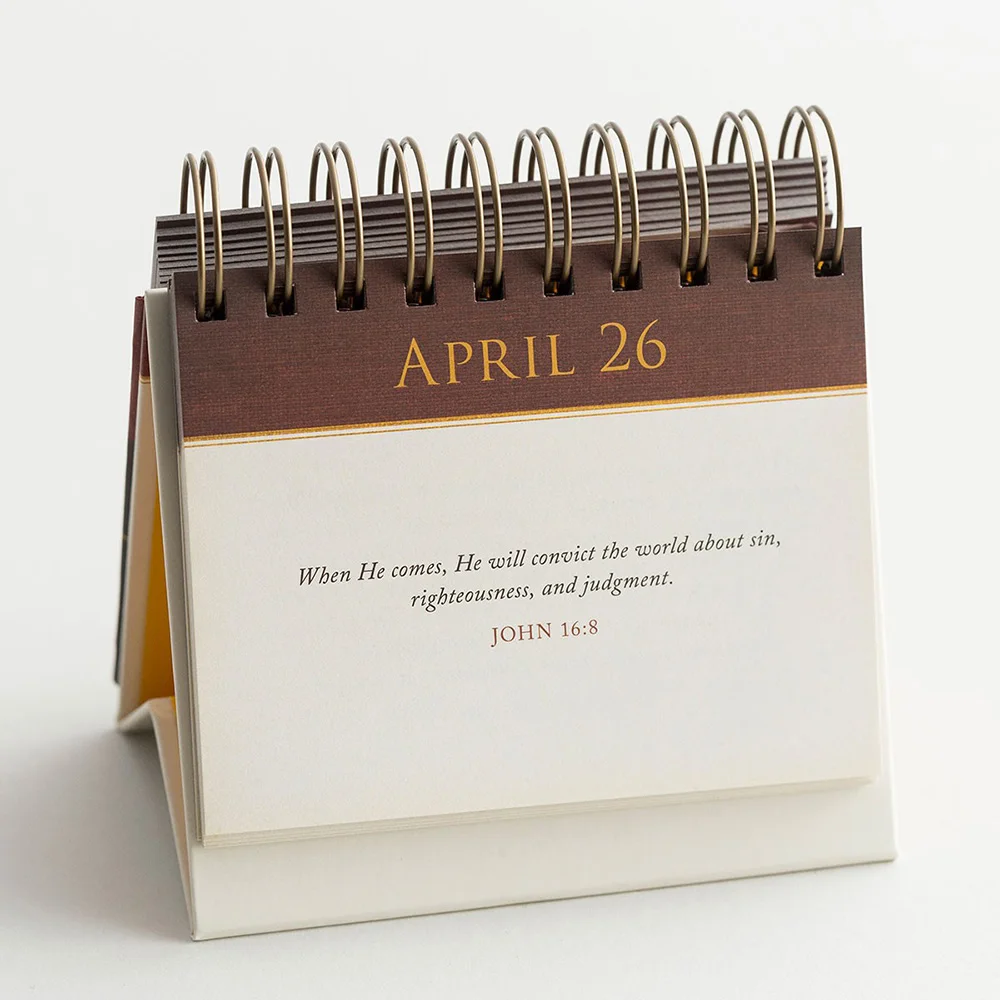 APRIL 26
When He comes, He will convict the world about sin,
righteousness, and judgment.
JOHN 16:8